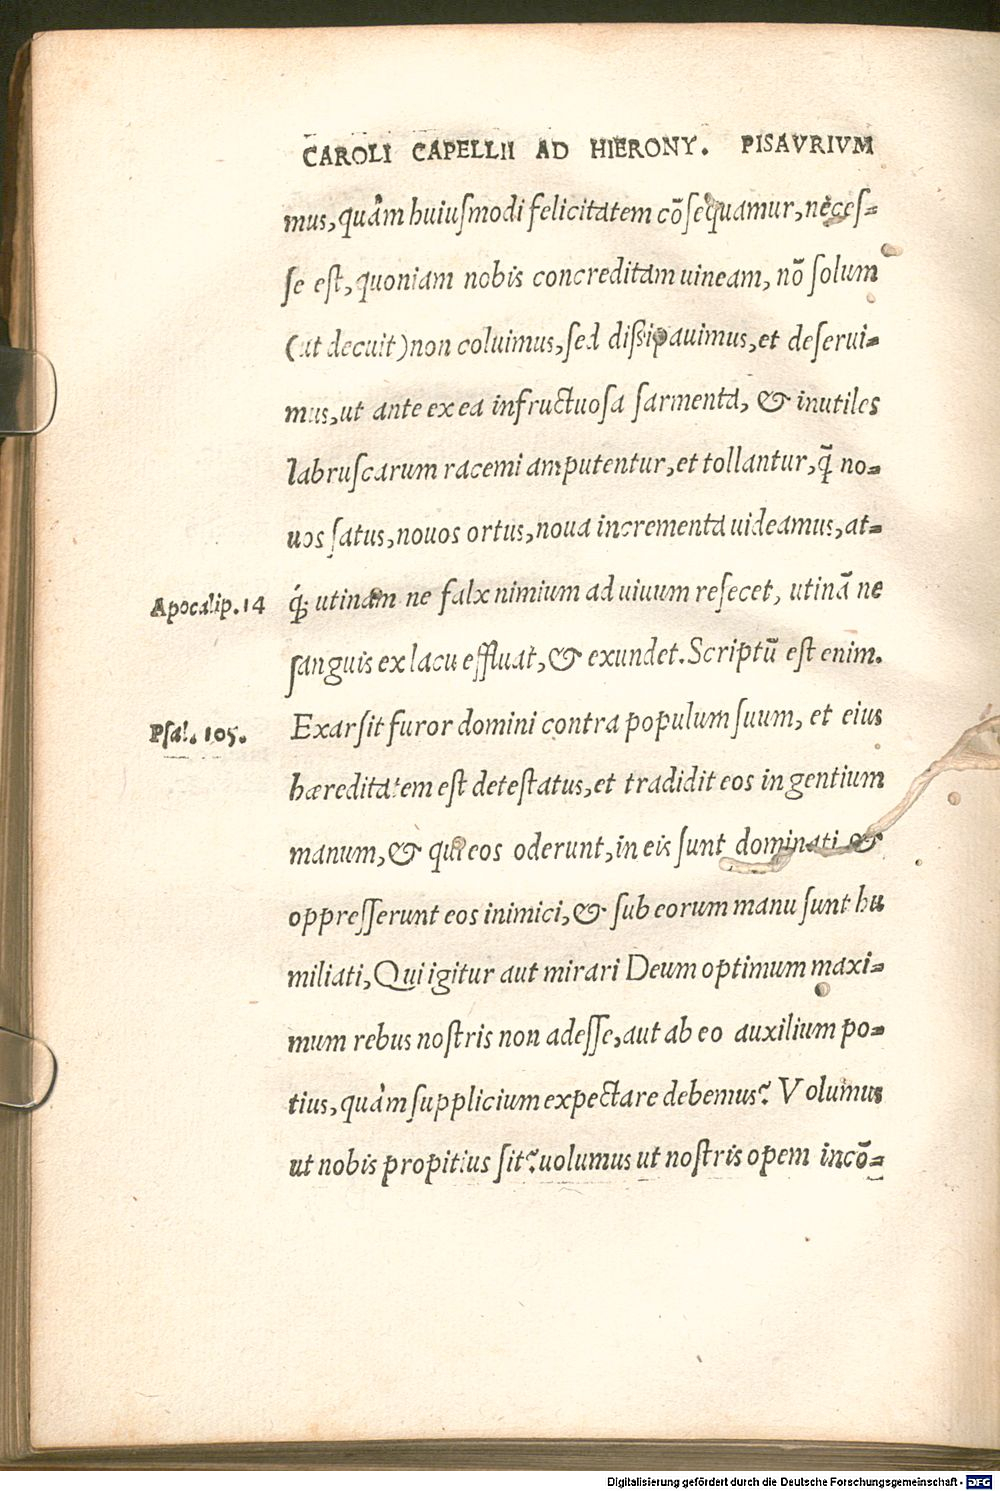 CAROLI CAPELLII AD HIERONY. PISAVRIVM
mus, quàm huiuſmodi felicitatem cõſequamur, neceſ=
ſe eſt, quoniam nobis concreditam uineam, nõ ſolum
(ut decuit) non coluimus, ſed diſsipauimus, et deſerui=
mus, ut ante ex ea infructuoſa ſarmenta, & inutiles
labruſcarum racemi amputentur, et tollantur, q̃ no=
uos ſatus, nouos ortus, noua incrementa uideamus, at=
Apocalip. 14 q́; utinam ne falx nimium ad uiuum reſecet, utinã ne
ſanguis ex lacu effluat, & exundet. Scriptũ eſt enim.
Pſal. 105. Exarſit furor domini contra populum ſuum, et eius
hæreditatem eſt deteſtatus, et tradidit eos in gentium
manum, & qui eos oderunt, in eis ſunt dominati &
oppreſſerunt eos inimici, & ſub eorum manu ſunt hu
miliati, Qui igitur aut mirari Deum optimum maxi=
mum rebus noſtris non adeſſe, aut ab eo auxilium po=
tius, quàm ſupplicium expectare debemus? Volumus
ut nobis propitius ſit? uolumus ut noſtris opem incõ=
Digitalisierung gefördert durch die Deutsche Forschungsgemeinschaft - DFG